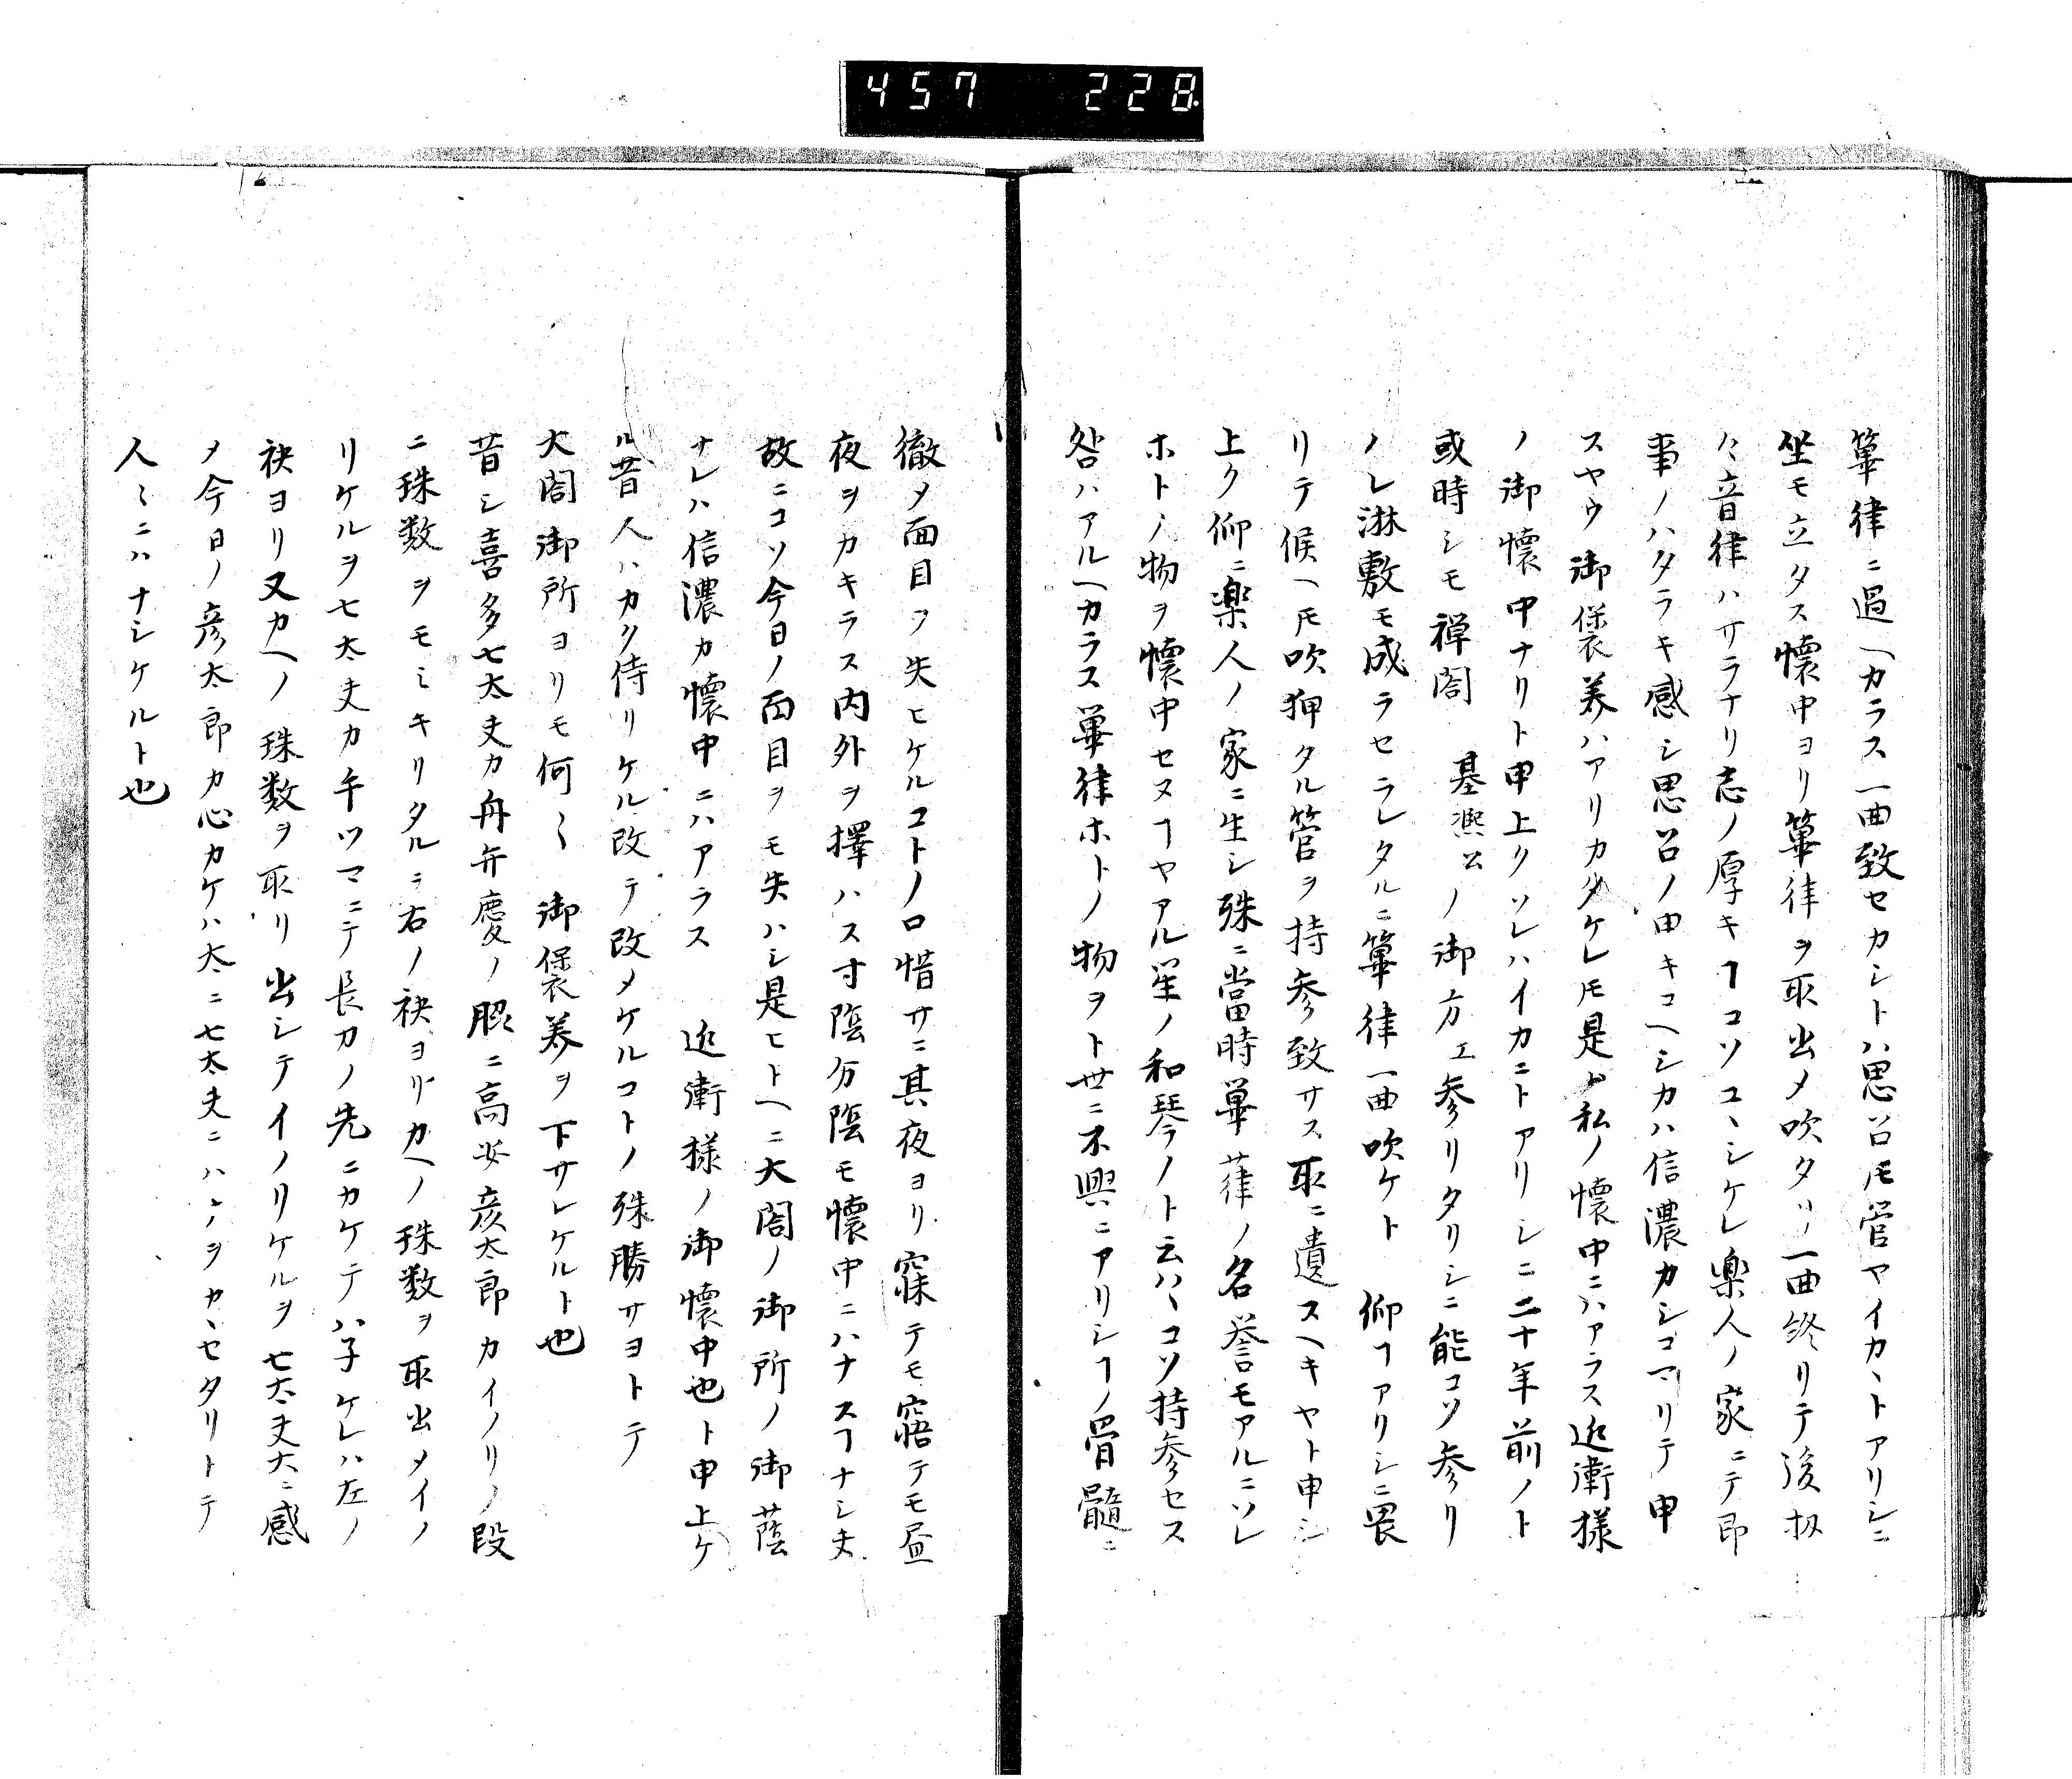 457 228
篳律ニ過ヘカラス一曲致セカシトハ思召𪜈管ヤイカヽトアリシニ
坐モ立タス懐中ヨリ篳律ヲ取出メ吹タリ一曲終リテ後扨
〻音律ハサラナリ志ノ厚キヿコソユヽシケレ楽人ノ家ニテ即
事ノハタラキ感シ思召ノ由キコヘシカハ信濃カシコマリテ申
スヤウ御褒美ハアリカタケレ𪜈是ハ私ノ懐中ニハアラス近衛様
ノ御懐中ナリト申上クソレハイカニトアリシニ二十年前ノト
或時シモ禅閤 基凞公ノ御方エ参リタリシニ能コソ参リ
ノレ淋敷モ成ラセラレタルニ篳律一曲吹ケト 仰ヿアリシニ畏
リテ候ヘ𪜈吹狎タル管ヲ持参致サス取ニ遺スヘキヤト申シ
上ク仰ニ楽人ノ家ニ生シ殊ニ當時篳葎ノ名誉モアルニソレ
ホトノ物ヲ懐中セヌヿヤアル笙ノ和琴ノト云ハヽコソ持参セス
咎ハアルヘカラス篳律ホトノ物ヲト世ニ不興ニアリシヿノ骨髓ニ
徹メ面目ヲ失ヒケルコトノ口惜サニ其夜ヨリ寐テモ寤テモ昼
夜ヲカキラス内外ヲ擇ハス寸陰分陰モ懐中ニハナスヿナシ夫
故ニコソ今日ノ面目ヲモ失ハシ是ヒトヘニ大閤ノ御所ノ御蔭
ナレハ信濃カ懐中ニハアラス 近衛様ノ御懐中也ト申上ケ
ル昔人ハカク侍リケル改テ改メケルコトノ殊勝サヨトテ
大閤御所ヨリモ何〱御褒美ヲ下サレケルト也
昔シ喜多七太夫カ舟弁慶ノ脇ニ高安彦太郎カイノリノ段
ニ珠数ヲモミキリタルヲ右ノ袂ヨリカヘノ珠数ヲ取出メイノ
リケルヲ七太夫カ午ツマニテ長刀ノ先ニカケテハ子ケレハ左ノ
袂ヨリ又カヘノ珠数ヲ取リ出シテイノリケルヲ七太夫大ニ感
メ今日ノ彦太郎カ心カケハ大ニ七太夫ニハヽヲカヽセタリトテ
人〻ニハナシケルト也